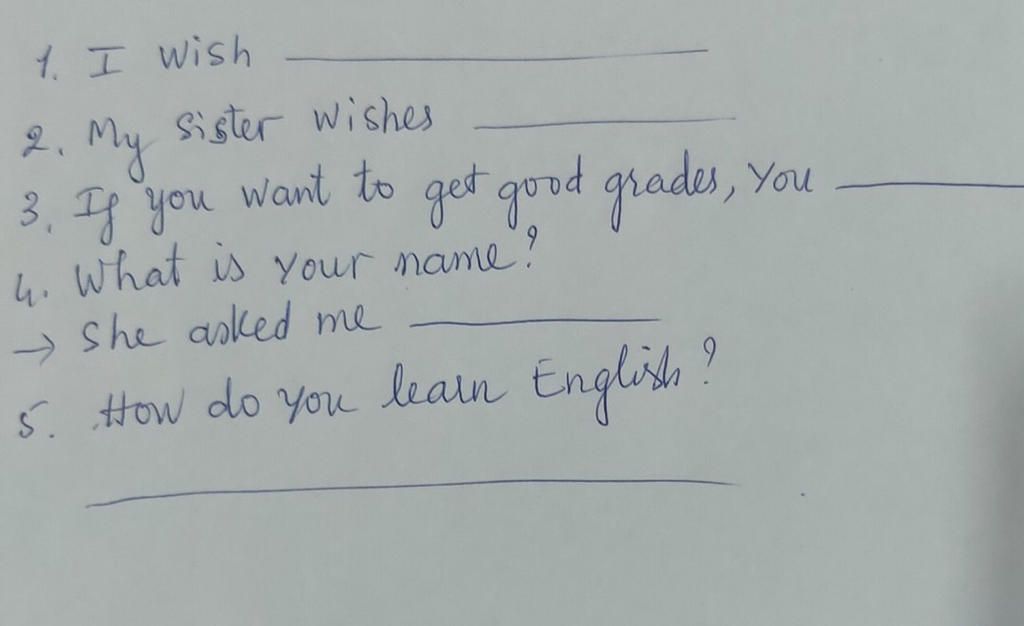 1. I wish ________
2. My sister wishes ________
3. If you want to get good grades, you ________
4. What is your name?
→ She asked me ________
5. How do you learn English?
________